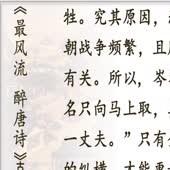 《最风流 醉唐诗》
牲。究其原因，
朝战争频繁，且
有关。所以，岑
名只向马上取，
一丈夫。”只有